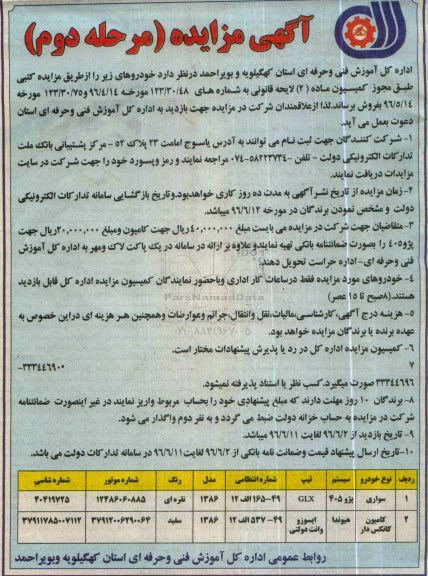 آگهی مزایده (مرحله دوم)
اداره کل آموزش فنی وحرفه ای استان کهگیلویه و بویراحمد درنظر دارد خودروهای زیر را ازطریق مزایده کتبی
طبق مجوز کمیسیون ماده (۲) لایحه قانونی به شماره های ۱۲۳/۳۰/۴۸ مورخه ۹۶/۴/۱۴ و۱۲۳/۳۰/۷۵ مورخه
۹۶/۵/۱۴ بفروش برساند.لذا ازعلاقمندان شرکت در مزایده جهت بازدید به اداره کل آموزش فنی وحرفه ای استان
دعوت بعمل می آید.
۱- شرکت کنندگان جهت ثبت نام می توانند به آدرس یاسوج امامت ۲۳ پلاک ۵۲ - مرکز پشتیبانی بانک ملت
تدارکات الکترونیکی دولت - تلفن ۵۸۲۲۳۷۳۴-۰۷۴ مراجعه نمایند و رمز وپسورد خود را جهت شرکت در سایت
مزایدات دریافت نمایند.
۲- زمان مزایده از تاریخ نشرآگهی به مدت ده روز کاری خواهدبود.وتاریخ بازگشایی سامانه تدارکات الکترونیکی
دولت و مشخص نمودن برندگان در مورخه ۹۶/۶/۱۲ میباشد.
۳- متقاضیان جهت شرکت در مزایده می بایست مبلغ ۴۰,۰۰۰,۰۰۰ ریال جهت کامیون ومبلغ ۲۰,۰۰۰,۰۰۰ریال جهت
پژو۴۰۵ را بصورت ضمانتنامه بانکی تهیه نمایندو علاوه بر ارائه در سامانه در یک پاکت لاک ومهر به اداره کل آموزش
فنی وحرفه ای- اداره حراست تحویل دهند.
۴- خودروهای مورد مزایده فقط درساعات کار اداری وباحضور نمایندگان کمیسیون مزایده اداره کل قابل بازدید
هستند.(۸صبح تا ۱۵ عصر)
۵- هزینه درج آگهی،کارشناسی،مالیات،نقل وانتقال،جرائم وعوارضات وهمچنین هر هزینه ای دراین خصوص به
عهده برنده یا برندگان مزایده خواهد بود.
۶- کمیسیون مزایده اداره کل در رد یا پذیرش پیشنهادات مختار است.
۷ ۳۳۳۴۴۶۹۰۰-
۳۳۳۴۴۶۹۶ صورت میگیرد.کسب نظر یا استناد پذیرفته نمیشود.
۸- برندگان ۱۰ روز مهلت دارند که مبلغ پیشنهادی خود را بحساب مربوط واریز نمایند در غیر اینصورت ضمانتنامه
شرکت در مزایده به حساب خزانه دولت ضبط می گردد و به نفر دوم واگذار می شود.
۹- تاریخ بازدید از ۹۶/۶/۲ لغایت ۹۶/۶/۱۱ میباشد.
۱۰-تاریخ ارسال پیشنهاد قیمت وضمانت نامه بانکی از ۹۶/۶/۲ لغایت۹۶/۶/۱۱ در سامانه تدارکات دولت می باشد.
ردیف نوع خودرو سیستم تیپ شماره انتظامی مدل رنگ شماره موتور شماره شاسی
۱ سواری پژو ۴۰۵ GLX ۴۹-۱۶۵ الف ۱۲ ۱۳۸۶ نقره ای ۱۲۴۸۶۰۶۰۸۸۵ ۴۰۴۱۹۷۲۵
۲ کامیون کانکس دار هیوندا ایسوزو وانت دولتی ۴۹-۵۳۷ الف ۱۲ ۱۳۸۶ سفید ۳۷۹۱۲۰۰۶۲۹۰۰۶۴ ۳۷۹۱۱۷۸۵۰۰۷۱۱۲
روابط عمومی اداره کل آموزش فنی وحرفه ای استان کهگیلویه وبویراحمد